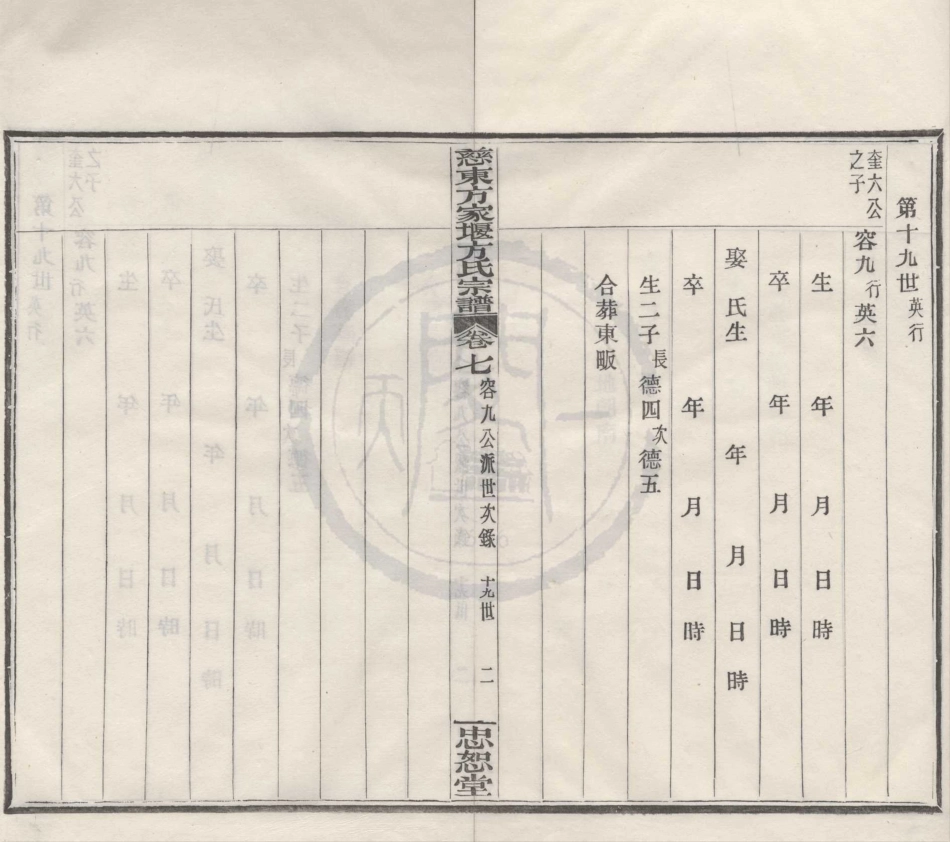 第十九世英行
奎六公之子
容九行英六
生 年 月 日 時
卒 年 月 日 時
娶 氏生 年 月 日 時
卒 年 月 日 時
生二子長德四次德五
合葬東畈
慈東方家堰方氏宗譜
卷七
容九公派世次錄 十九世 二
忠恕堂